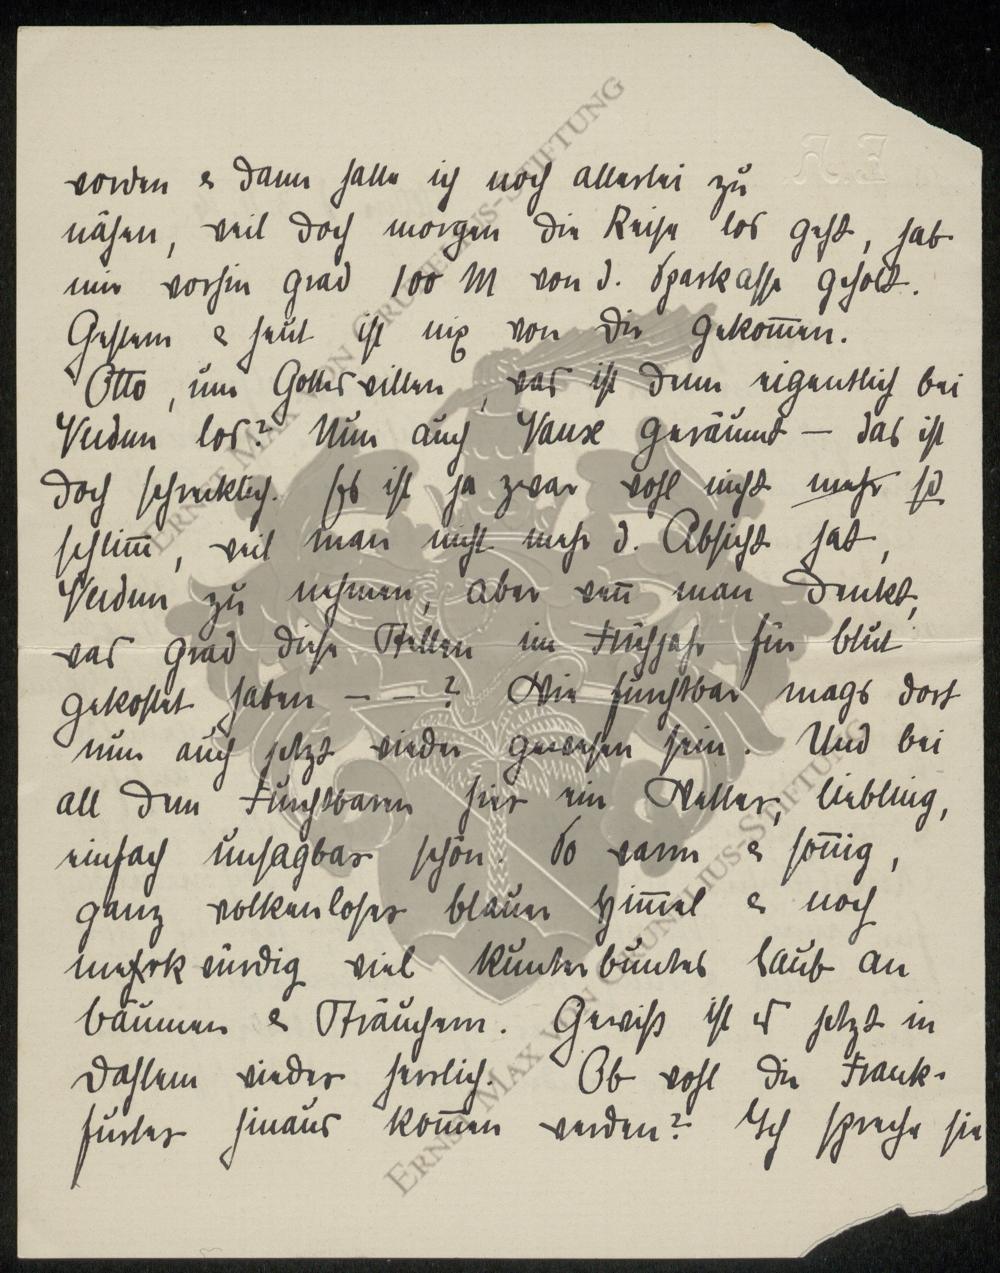 worden & dann hatte ich noch allerlei zu
nähen, weil doch morgen die Reise los geht, hab
mir vorhin grad 100 M von d. Sparkasse geholt.
Gestern & heut ist nix von dir gekom̅en.
Otto, um Gottes willen, was ist denn eigentlich bei
Verdun los? Nun auch Vaux geräumt — das ist
doch schrecklich. Es ist ja zwar wohl nicht mehr so
schlim̅, weil man nicht mehr d. Absicht hat,
Verdun zu nehmen, aber wen̅ man denkt,
was grad diese Stellen im Frühjahr für blut
gekostet haben — — ? Wie furchtbar mags dort
nun auch jetzt wieder gewesen sein. Und bei
all dem Furchtbaren hier ein Wetter, liebling,
einfach unsagbar schön. So warm & son̅ig,
ganz wolkenloser blauer Him̅el & noch
merkwürdig viel kunterbuntes Laub an
bäumen & Sträuchern. Gewiß ist es jetzt in
Dahlem wieder herrlich. Ob wohl die Frank-
furter hinaus kom̅en werden? Ich spreche sie
E R
ERNST MAX VON GRUNELIUS-STIFTUNG
ERNST MAX VON GRUNELIUS-STIFTUNG